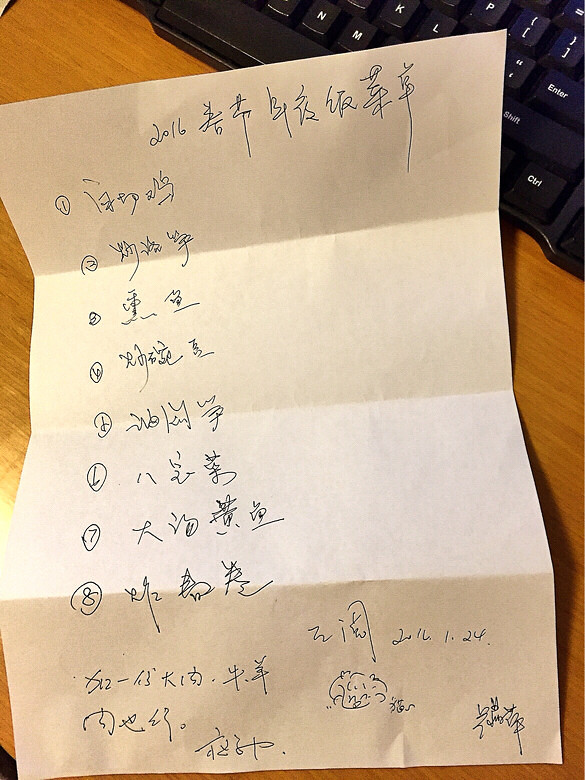 P
{
[
}
]
K
L
"
'
Enter
N
M
Shift
Ctrl
2016 春节年夜饭菜单
① 白切鸡
②
③ 熏鱼
④ 炒豌豆
⑤ 油焖笋
⑥ 八宝菜
⑦ 大汤黄鱼
⑧ 炸春卷
2016.1.24.
加一份大肉.牛羊
肉也行。